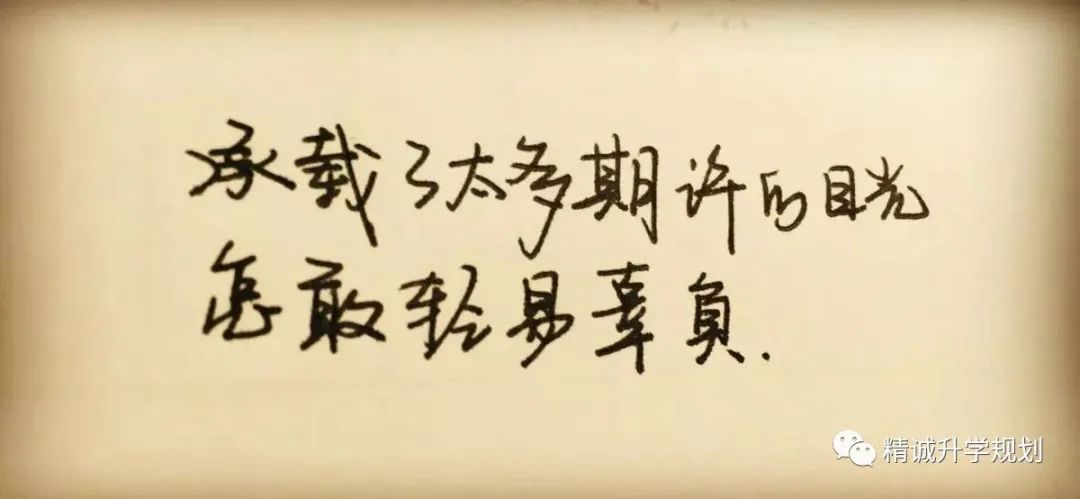 承载了太多期许的目光
怎敢轻易辜负.
精诚升学规划